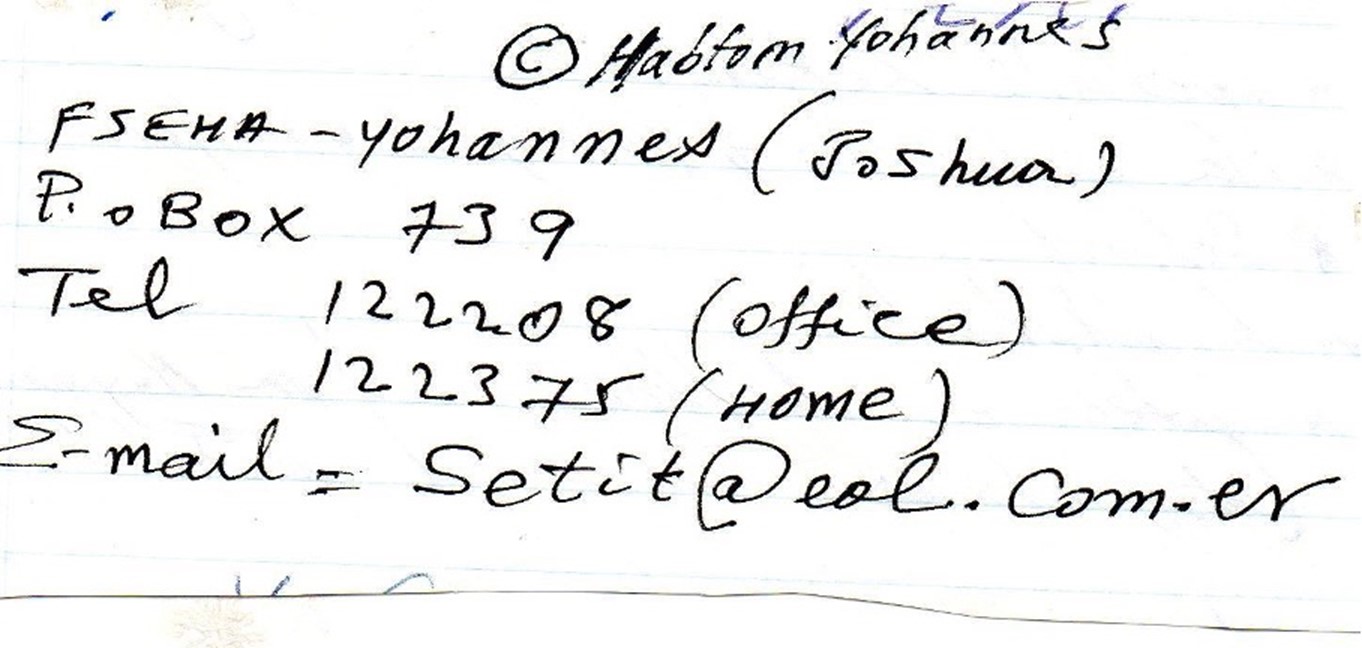 © Habtom Yohannes
FSEHA - Yohannes (Joshua)
P.o Box 739
Tel 122208 (Office)
122375 (Home)
E-mail = Setit@eol.com.er